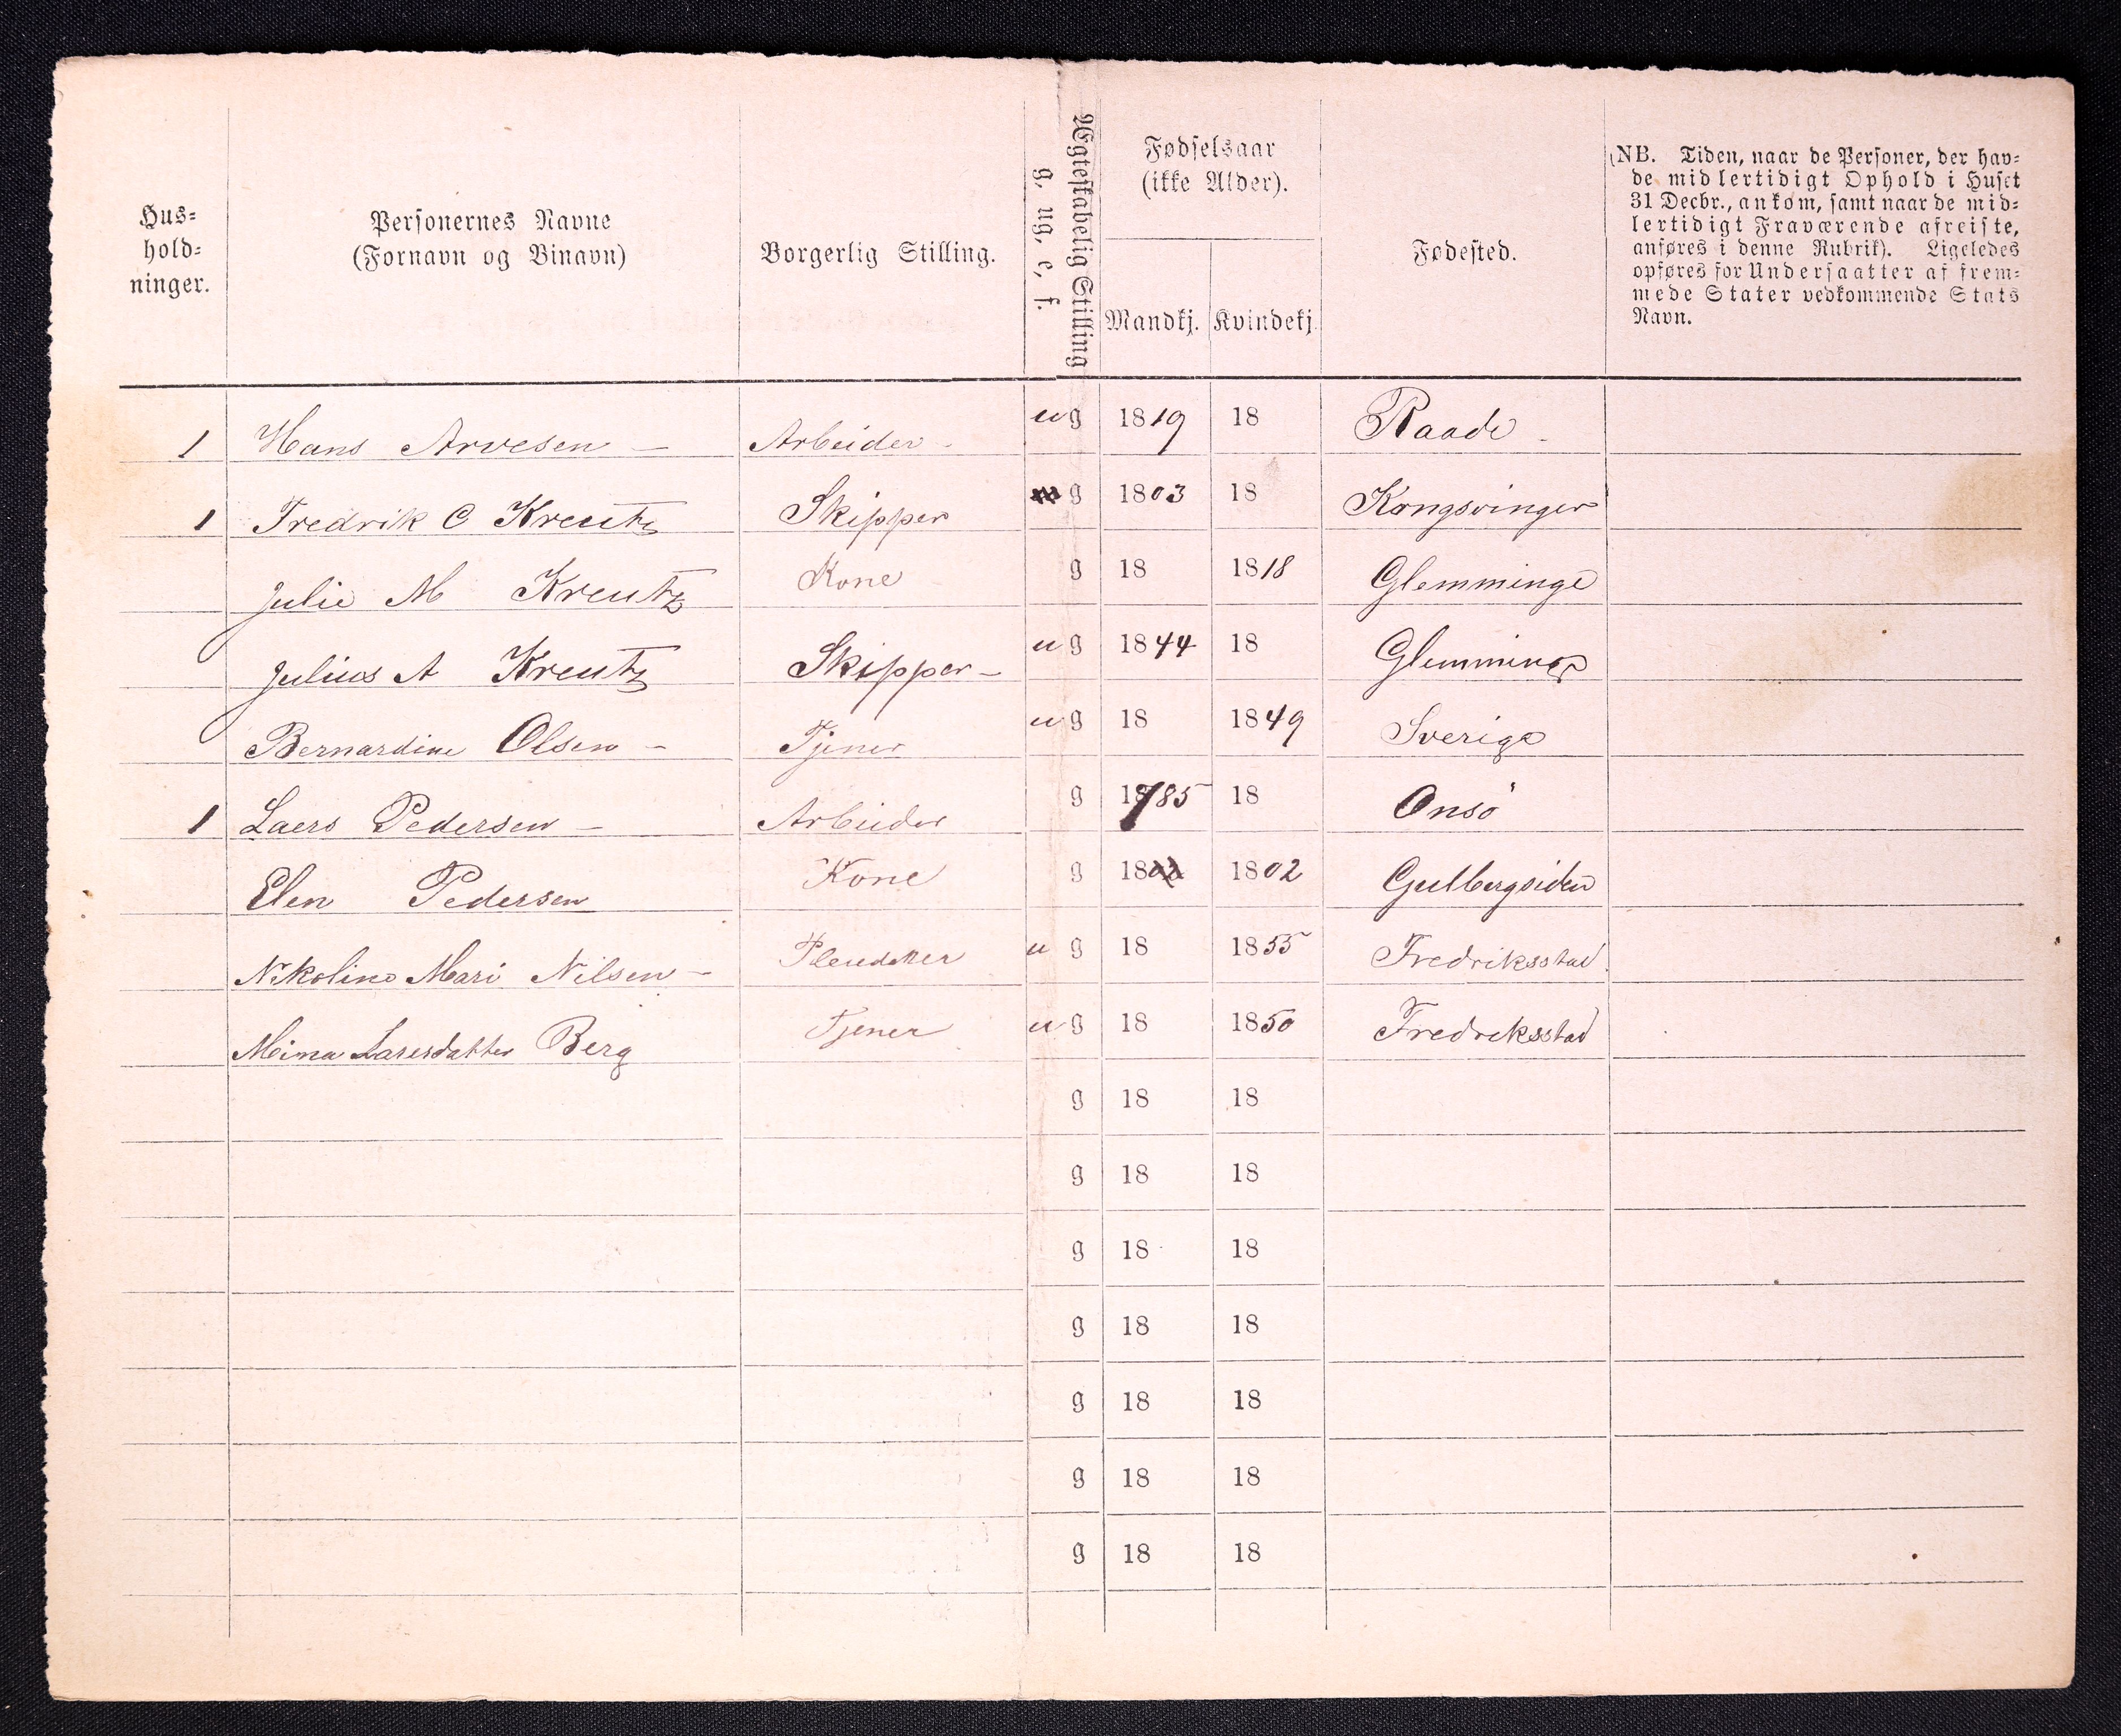 Hus=
hold=
ninger.
Personernes Navne
(Fornavn og Binavn)
Borgerlig Stilling.
Ægteskabelig Stilling
g. ug. e. f.
Fødselsaar
(ikke Alder).
Mandkj. Kvindekj.
Fødested.
(NB. Tiden, naar de Personer, der hav=
de midlertidigt Ophold i Huset
31 Decbr., ankom, samt naar de mid=
lertidigt Fraværende afreiste,
anføres i denne Rubrik). Ligeledes
opføres for Undersaatter af frem=
mede Stater vedkommende Stats
Navn.
1 Hans Arvesen – Arbeider – ug 1819 18 Raade –
1 Fredrik C Kreutz Skipper g 1803 18 Kongsvinger
Julie M Kreutz Kone g 18 1818 Glemminge
Julius A Kreutz Skipper – ug 1844 18 Glemminge
Bernardine Olsen – Tjener ug 18 1849 Sverige
1 Laers Pedersen – Arbeider g 1785 18 Onsö
Elen Pedersen Kone g 18 1802 Gulbergsiden
Nikoline Mari Nilsen – ug 18 1855 Fredriksstad
Mina Larsesdatter Berg Tjener ug 18 1850 Fredriksstad
g 18 18
g 18 18
g 18 18
g 18 18
g 18 18
g 18 18
g 18 18